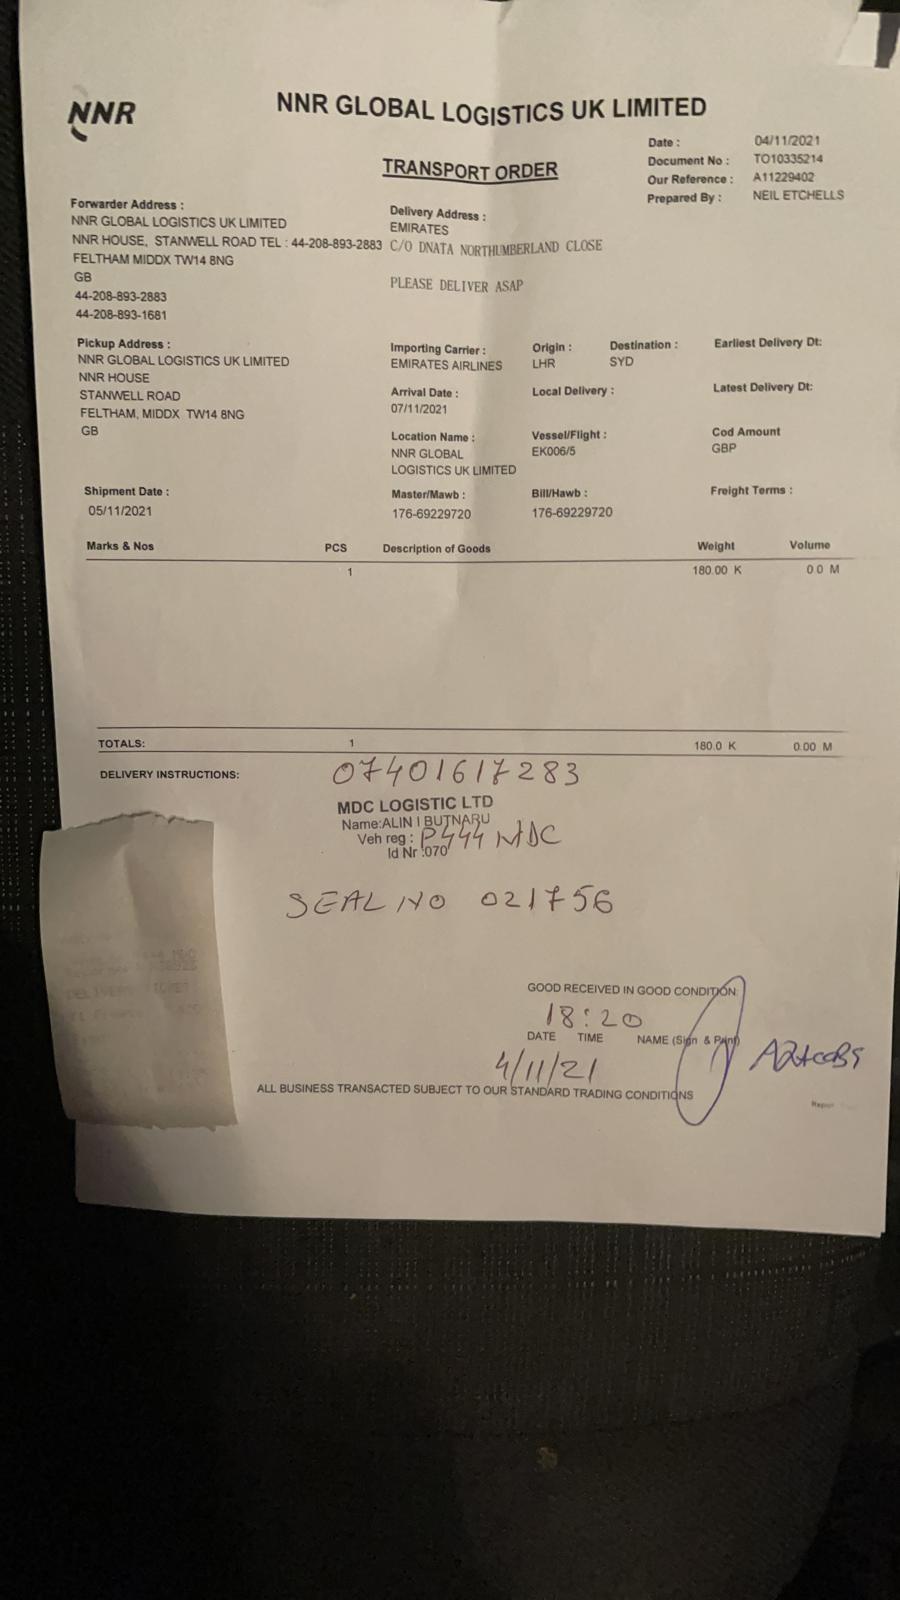 NNR
NNR GLOBAL LOGISTICS UK LIMITED
TRANSPORT ORDER
Date : 04/11/2021
Document No : TO10335214
Our Reference : A11229402
Prepared By : NEIL ETCHELLS
Forwarder Address :
NNR GLOBAL LOGISTICS UK LIMITED
NNR HOUSE, STANWELL ROAD TEL : 44-208-893-2883
FELTHAM MIDDX TW14 8NG
GB
44-208-893-2883
44-208-893-1681
Delivery Address :
EMIRATES
C/O DNATA NORTHUMBERLAND CLOSE
PLEASE DELIVER ASAP
Pickup Address :
NNR GLOBAL LOGISTICS UK LIMITED
NNR HOUSE
STANWELL ROAD
FELTHAM, MIDDX TW14 8NG
GB
Importing Carrier : Origin : Destination : Earliest Delivery Dt:
EMIRATES AIRLINES LHR SYD
Arrival Date : Local Delivery : Latest Delivery Dt:
07/11/2021
Location Name : Vessel/Flight : Cod Amount
NNR GLOBAL EK006/5 GBP
LOGISTICS UK LIMITED
Shipment Date : Master/Mawb : Bill/Hawb : Freight Terms :
05/11/2021 176-69229720 176-69229720
Marks & Nos PCS Description of Goods Weight Volume
1 180.00 K 0 0 M
TOTALS: 1 180.0 K 0.00 M
DELIVERY INSTRUCTIONS: 07401617283
MDC LOGISTIC LTD
Name:ALIN I BUTNARU
Veh reg : P444 MDC
Id Nr :070
SEAL NO 021756
GOOD RECEIVED IN GOOD CONDITION:
18:20
DATE TIME NAME (Sign & Print)
4/11/21
ALL BUSINESS TRANSACTED SUBJECT TO OUR STANDARD TRADING CONDITIONS